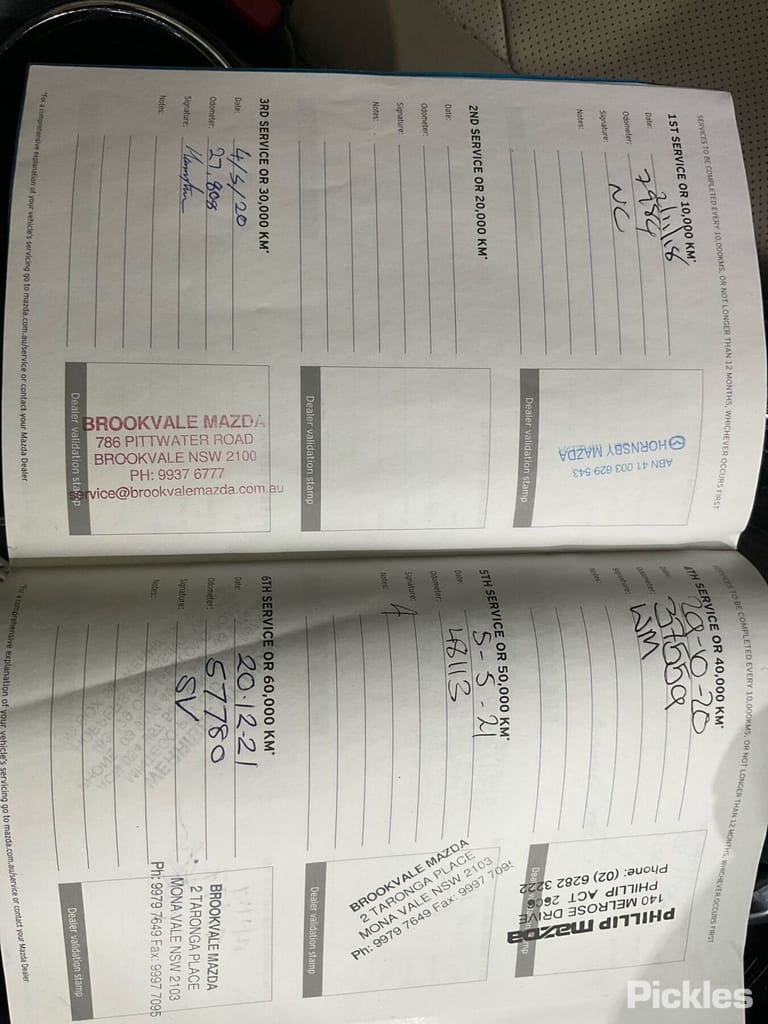 SERVICES TO BE COMPLETED EVERY 10,000KMS, OR NOT LONGER THAN 12 MONTHS, WHICHEVER OCCURS FIRST
1ST SERVICE OR 10,000 KM*
Date:
Odometer: 7984
Signature: NC
Notes:
HORNSBY MAZDA
ABN 41 003 629 543
Dealer validation stamp
2ND SERVICE OR 20,000 KM*
Date:
Odometer:
Signature:
Notes:
Dealer validation stamp
3RD SERVICE OR 30,000 KM*
Date: 4/5/20
Odometer: 27,808
Signature:
Notes:
BROOKVALE MAZDA
786 PITTWATER ROAD
BROOKVALE NSW 2100
PH: 9937 6777
service@brookvalemazda.com.au
Dealer validation stamp
*For a comprehensive explanation of your vehicle's servicing go to mazda.com.au/service or contact your Mazda Dealer
SERVICES TO BE COMPLETED EVERY 10,000KMS, OR NOT LONGER THAN 12 MONTHS, WHICHEVER OCCURS FIRST
4TH SERVICE OR 40,000 KM*
Date: 20-10-20
Odometer:
Signature: WM
Notes:
PHILLIP mazda
140 MELROSE DRIVE
PHILLIP ACT 2606
Phone: (02) 6282 3222
5TH SERVICE OR 50,000 KM*
Date: 5-5-21
Odometer: 48113
Signature:
Notes:
BROOKVALE MAZDA
2 TARONGA PLACE
MONA VALE NSW 2103
Ph: 9979 7649 Fax: 9997 7095
Dealer validation stamp
6TH SERVICE OR 60,000 KM*
Date: 20.12-21
Odometer: 57780
Signature: SV
Notes:
BROOKVALE MAZDA
2 TARONGA PLACE
MONA VALE NSW 2103
Ph: 9979 7649 Fax: 9997 7095
Dealer validation stamp
*For a comprehensive explanation of your vehicle's servicing go to mazda.com.au/service or contact your Mazda Dealer
Pickles